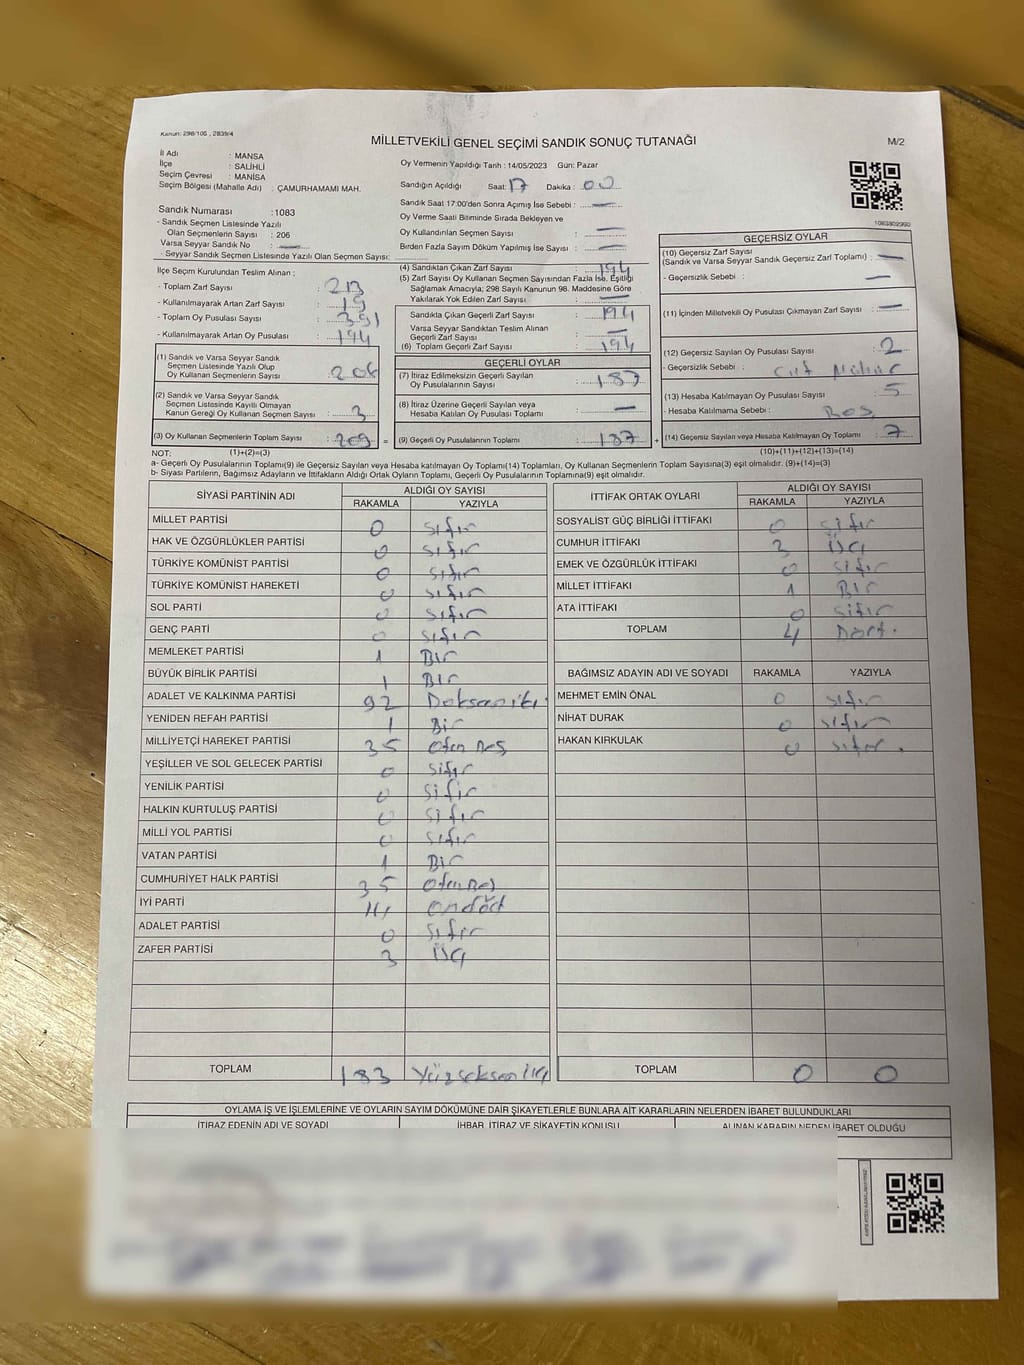 Kanun: 298/106 , 2839/4
MİLLETVEKİLİ GENEL SEÇİMİ SANDIK SONUÇ TUTANAĞI
M/2
İl Adı : MANİSA
İlçe : SALİHLİ
Seçim Çevresi : MANİSA
Seçim Bölgesi (Mahalle Adı) : ÇAMURHAMAMI MAH.
Sandık Numarası : 1083
- Sandık Seçmen Listesinde Yazılı
Olan Seçmenlerin Sayısı : 206
Varsa Seyyar Sandık No : —
- Seyyar Sandık Seçmen Listesinde Yazılı Olan Seçmen Sayısı:
İlçe Seçim Kurulundan Teslim Alınan ;
- Toplam Zarf Sayısı : 213
- Kullanılmayarak Artan Zarf Sayısı : 19
- Toplam Oy Pusulası Sayısı : 391
- Kullanılmayarak Artan Oy Pusulası : 194
(1) Sandık ve Varsa Seyyar Sandık
Seçmen Listesinde Yazılı Olup
Oy Kullanan Seçmenlerin Sayısı : 206
(2) Sandık ve Varsa Seyyar Sandık
Seçmen Listesinde Kayıtlı Olmayan
Kanun Gereği Oy Kullanan Seçmen Sayısı : 3
(3) Oy Kullanan Seçmenlerin Toplam Sayısı : 209 =
Oy Vermenin Yapıldığı Tarih : 14/05/2023 Gün: Pazar
Sandığın Açıldığı Saat: 17 Dakika : 00
Sandık Saat 17:00'den Sonra Açımış İse Sebebi : —
Oy Verme Saati Bitiminde Sırada Bekleyen ve
Oy Kullandırılan Seçmen Sayısı : —
Birden Fazla Sayım Döküm Yapılmış İse Sayısı : —
(4) Sandıktan Çıkan Zarf Sayısı : 194
(5) Zarf Sayısı Oy Kullanan Seçmen Sayısından Fazla İse, Eşitliği
Sağlamak Amacıyla; 298 Sayılı Kanunun 98. Maddesine Göre
Yakılarak Yok Edilen Zarf Sayısı : —
Sandıkla Çıkan Geçerli Zarf Sayısı : 194
Varsa Seyyar Sandıktan Teslim Alınan
Geçerli Zarf Sayısı : —
(6) Toplam Geçerli Zarf Sayısı : 194
GEÇERLİ OYLAR
(7) İtiraz Edilmeksizin Geçerli Sayılan
Oy Pusulalarının Sayısı : 187
(8) İtiraz Üzerine Geçerli Sayılan veya
Hesaba Katılan Oy Pusulası Toplamı : —
(9) Geçerli Oy Pusulalarının Toplamı : 187 +
1083802992
GEÇERSİZ OYLAR
(10) Geçersiz Zarf Sayısı
(Sandık ve Varsa Seyyar Sandık Geçersiz Zarf Toplamı) : —
- Geçersizlik Sebebi : —
(11) İçinden Milletvekili Oy Pusulası Çıkmayan Zarf Sayısı : —
(12) Geçersiz Sayılan Oy Pusulası Sayısı : 2
- Geçersizlik Sebebi : Çift Mühür
(13) Hesaba Katılmayan Oy Pusulası Sayısı : 5
- Hesaba Katılmama Sebebi : Boş
(14) Geçersiz Sayılan veya Hesaba Katılmayan Oy Toplamı : 7
NOT: (1)+(2)=(3) (10)+(11)+(12)+(13)=(14)
a- Geçerli Oy Pusulalarının Toplamı(9) ile Geçersiz Sayılan veya Hesaba katılmayan Oy Toplamı(14) Toplamları, Oy Kullanan Seçmenlerin Toplam Sayısına(3) eşit olmalıdır. (9)+(14)=(3)
b- Siyasi Partilerin, Bağımsız Adayların ve İttifakların Aldığı Ortak Oyların Toplamı, Geçerli Oy Pusulalarının Toplamına(9) eşit olmalıdır.
SİYASİ PARTİNİN ADI ALDIĞI OY SAYISI
RAKAMLA YAZIYLA
MİLLET PARTİSİ 0 sıfır
HAK VE ÖZGÜRLÜKLER PARTİSİ 0 sıfır
TÜRKİYE KOMÜNİST PARTİSİ 0 sıfır
TÜRKİYE KOMÜNİST HAREKETİ 0 sıfır
SOL PARTİ 0 sıfır
GENÇ PARTİ 0 sıfır
MEMLEKET PARTİSİ 1 Bir
BÜYÜK BİRLİK PARTİSİ 1 Bir
ADALET VE KALKINMA PARTİSİ 92 Doksan iki
YENİDEN REFAH PARTİSİ 1 Bir
MİLLİYETÇİ HAREKET PARTİSİ 35 Otuz Beş
YEŞİLLER VE SOL GELECEK PARTİSİ 0 Sıfır
YENİLİK PARTİSİ 0 Sıfır
HALKIN KURTULUŞ PARTİSİ 0 Sıfır
MİLLİ YOL PARTİSİ 0 Sıfır
VATAN PARTİSİ 1 Bir
CUMHURİYET HALK PARTİSİ 35 Otuz Beş
İYİ PARTİ 14 ondört
ADALET PARTİSİ 0 Sıfır
ZAFER PARTİSİ 3 üç
TOPLAM 183 Yüzseksen üç
İTTİFAK ORTAK OYLARI ALDIĞI OY SAYISI
RAKAMLA YAZIYLA
SOSYALİST GÜÇ BİRLİĞİ İTTİFAKI 0 sıfır
CUMHUR İTTİFAKI 3 üç
EMEK VE ÖZGÜRLÜK İTTİFAKI 0 sıfır
MİLLET İTTİFAKI 1 Bir
ATA İTTİFAKI 0 Sıfır
TOPLAM 4 Dört.
BAĞIMSIZ ADAYIN ADI VE SOYADI RAKAMLA YAZIYLA
MEHMET EMİN ÖNAL 0 sıfır
NİHAT DURAK 0 sıfır
HAKAN KIRKULAK 0 sıfır.
TOPLAM 0 0
OYLAMA İŞ VE İŞLEMLERİNE VE OYLARIN SAYIM DÖKÜMÜNE DAİR ŞİKAYETLERLE BUNLARA AİT KARARLARIN NELERDEN İBARET BULUNDUKLARI
İTİRAZ EDENİN ADI VE SOYADI İHBAR, İTİRAZ VE ŞİKAYETİN KONUSU ALINAN KARARIN NEDEN İBARET OLDUĞU